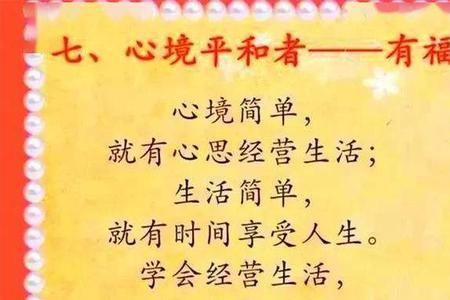 七、心境平和者——有福
心境简单，
就有心思经营生活；
生活简单，
就有时间享受人生。
学会经营生活，